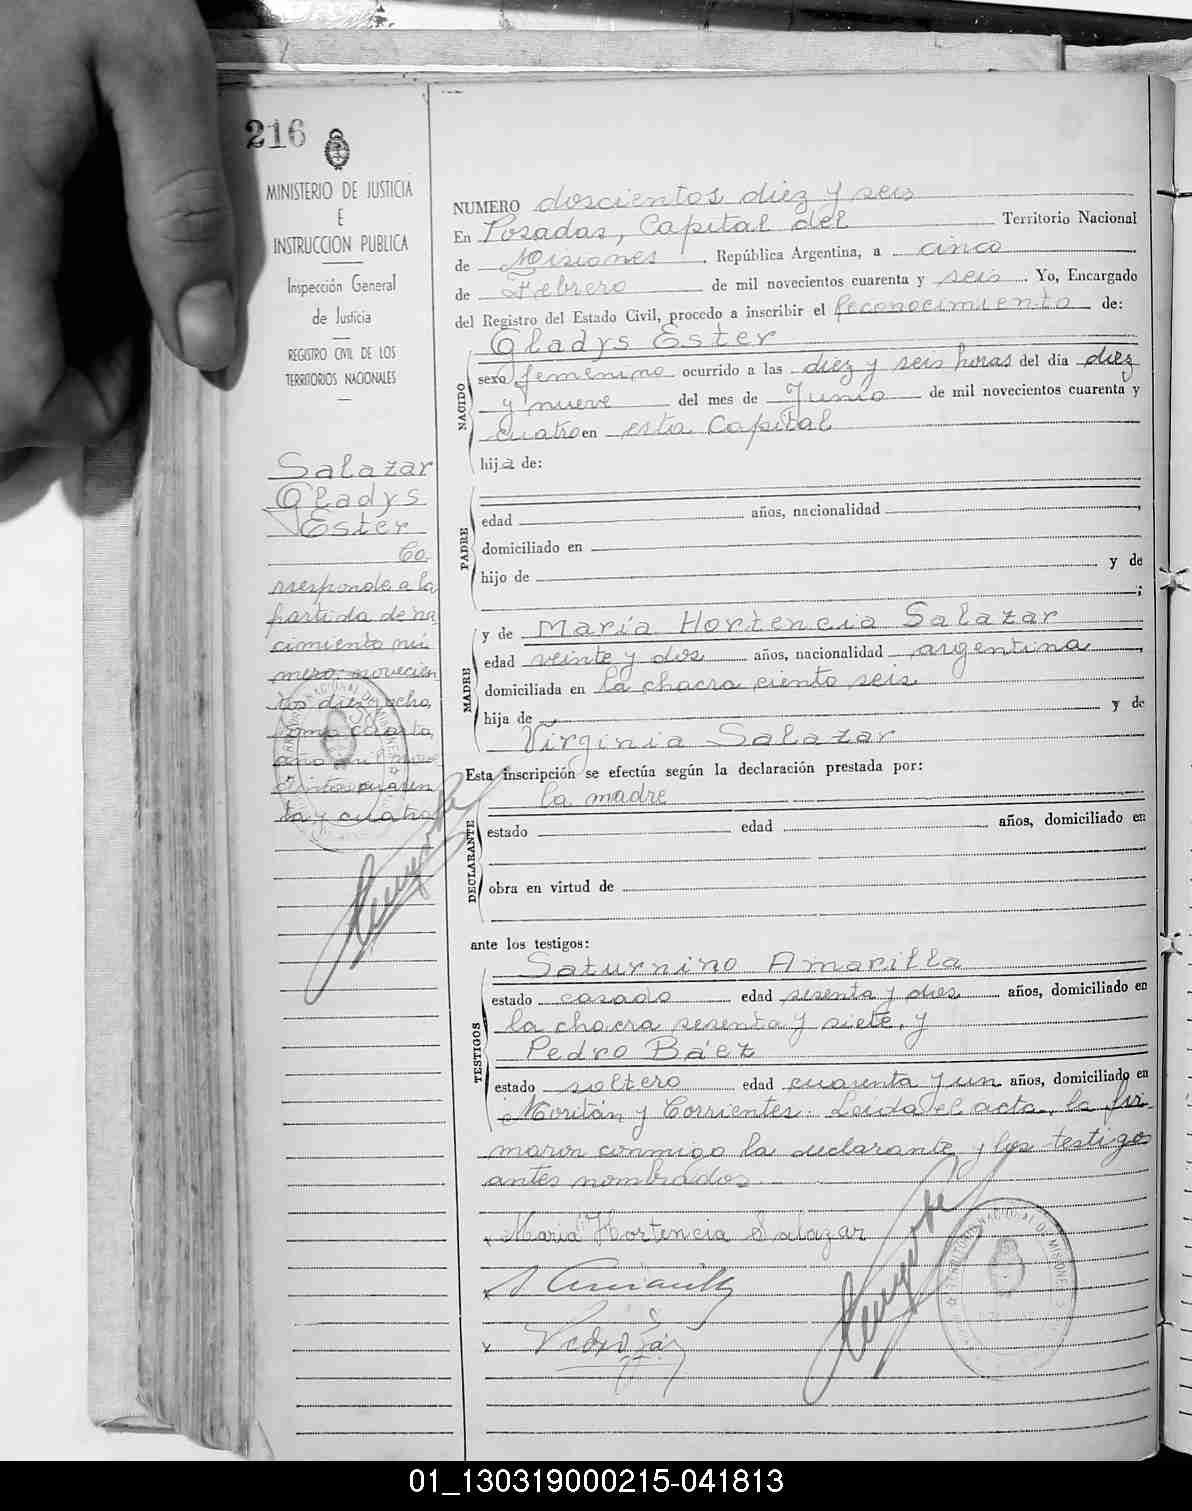 216
MINISTERIO DE JUSTICIA
E
INSTRUCCION PUBLICA
Inspección General
de Justicia
REGISTRO CIVIL DE LOS
TERRITORIOS NACIONALES
Salazar
Gladys
Ester
Co
rresponde a la
partida de na
cimiento nú
mero: novecien
tos diez y ocho,
tomo cuarto,
año mil nove
cientos cuaren
ta y cuatro
NUMERO doscientos diez y seis
En Posadas, Capital del Territorio Nacional
de Misiones, República Argentina, a cinco
de Febrero de mil novecientos cuarenta y seis. Yo, Encargado
del Registro del Estado Civil, procedo a inscribir el reconocimiento de:
NACIDO
Gladys Ester
sexo femenino ocurrido a las diez y seis horas del dia diez
y nueve del mes de Junio de mil novecientos cuarenta y
cuatro en esta Capital
hija de:
PADRE
edad años, nacionalidad
domiciliado en
hijo de y de
;
MADRE
y de María Hortencia Salazar
edad veinte y dos años, nacionalidad argentina,
domiciliada en la chacra ciento seis
hija de y de
Virginia Salazar
Esta inscripción se efectúa según la declaración prestada por:
DECLARANTE
la madre
estado edad años, domiciliado en
obra en virtud de
ante los testigos:
TESTIGOS
Saturnino Amarilla
estado casado edad sesenta y dos años, domiciliado en
la chacra sesenta y siete, y
Pedro Báez
estado soltero edad cuarenta y un años, domiciliado en
Moritán y Corrientes. Leída el acta, la fir-
maron conmigo la declarante y los testigos
antes nombrados.
x Maria Hortencia Salazar
x S Amarilla
x Pedro Báez
TERRITORIO NACIONAL DE MISIONES
01_130319000215-041813